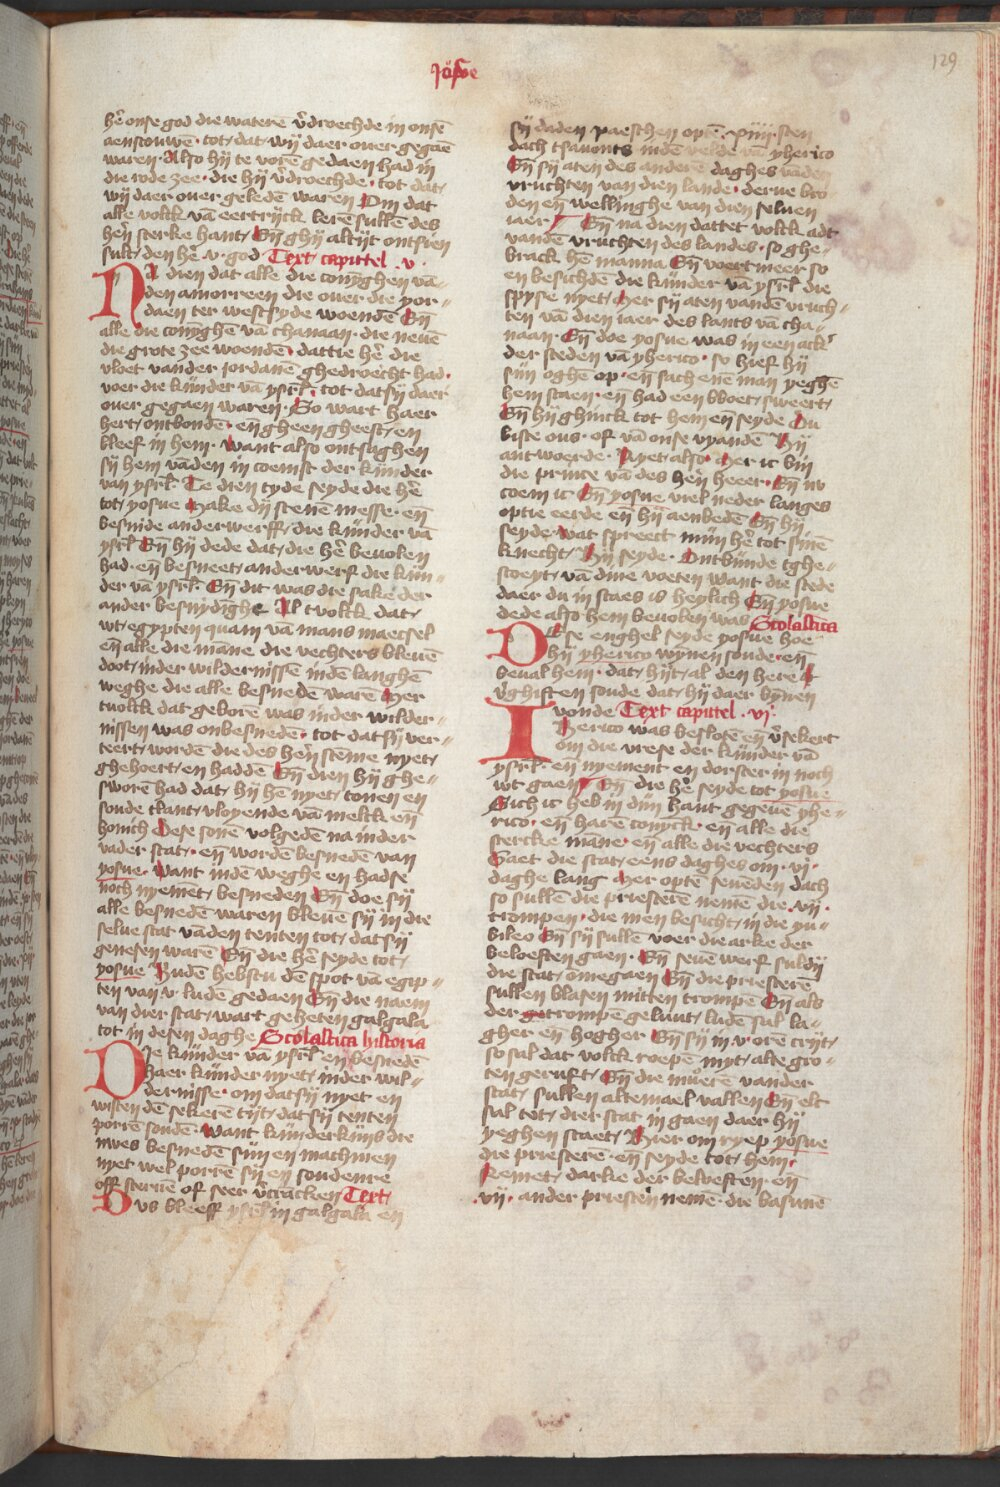 Josue
129
hē onse god die waterē v̄droechde in onsē
aenscouwē · tot dat wij daer ouer gegaē
waren · Also hij te vorē gedaen had in
die rode zee · die hij v̄droechde · tot dat
wij daer ouer geledē waren Om dat
alle volck vā eertrijck lerē sullē des
hēn sterke hant Eñ ghij altijt ontsien
sult den hē · v · god Text capittel · v ·
NA dien dat alle die conighen vā
den amorreen die ouer die yor-
daen ter westsyde woendē Eñ
alle die conighē vā chanaan · die neuē
die grote zee woendē · dattie hē die
vloet vander jordanē ghedroecht had ·
voer die kijnder vā ysrl̄ · tot datsij daer
ouer gegaen waren · So wart haer
hert ontbondē · eñ gheen gheest en
bleef in hem · want also ontsaghen
sij hem vāden in coemst der kijnder
van ysrl̄ · Te dien tyde seyde die hē
tot yosue Make dij stenē messe · eñ
besnide anderwerff die kijnder vā
ysrl̄ Eñ hij dede dat die hē beuolen
had · eñ besneet anderwerf die kijn-
der vā ysrl̄ · Eñ dit was die sake der
ander besnydīghe Al tvolck dat
wt egypten quam vā mans maecsel
eñ alle die māne die vechters bleuē
doot inder wildernissē indē langhē
weghe die alle besnedē warē Mer
tvolck dat geborē was inder wilder-
nissen was onbesnedē · tot datsij ver-
teert wordē die des hēn stēme nyet
ghehoert en haddē Eñ dien hij ghe-
sworē had dat hij hē nyet tonen en
soude tlant vloyende vā melck eñ
honich Dese sonē volgedē na inder
vader stat · eñ wordē besnedē van
yosue · want indē weghe en hadse
noch nyemet besneden Eñ doe sij
alle besnedē waren bleuē sij in die
selue stat vāden tenten tot datsij
genesen warē Eñ die hē seyde tot
yosue Hudē hebstu dē spot vā egip-
ten van v · ludē gedaen Eñ die naem
van dier stat wart geheten galgala
tot in desen daghe Scolastica historia
DJe kijnder vā ysrl̄ en besnedē
haer kijnder nyet inder wil-
dernisse · om datsij nyet en
wisten dē sekerē tijt datsij tenten
porrē soudē · want kijnderkijns die
nuwes besnedē sijn en machmen
nyet wel porrē sij en soudenre
off steruē of seer v̄cracken Text
Dus bleeff ysrl̄ in galgala en
sij daden paeschen optē · xiiij · sten
dach tsauonts indē velde vā yherico
Eñ sij aten des anderē daghes vāden
vruchten van dien lande · derue bro
den eñ wellinghe van dien seluen
iaer Eñ na dien dattet volck adt
vandē vruchten des landes · so ghe-
brack hē manna Eñ voert meer so
en besichdē die kijnder vā ysrl̄ die
spyse nyet Mer sij aten vandē vruch-
ten vā dien iaer des lants vā cha-
naan · Eñ doe yosue was in een ack
der steden vā yherico · so hief hij
sijn oghē op · eñ sach enē man yeghē
hem staen · eñ had een bloet sweert
Eñ hij ghinck tot hem eñ seyde Du
biste ons · of vā onse vyandē Hij
antwoerde · Nyet also · Mer ic bin
die prince vā des hēn heeer · Eñ nv
coem ic Eñ yosue viel neder langes
optie eerde eñ hij aenbedē Eñ hij
seyde · wat spreect mijn hē tot sinē
knecht Hij seyde · Ontbinde tghe-
scoeyt vā dine voeten want die stede
daer du in staes is heylich Eñ yosue
dede also hem beuolen was Scolastica
DEse enghel seyde yosue hoe
hij yherico wynen soude · eñ
beual hem · dat hijt al den herē
v̄ghiften soude dat hij daer bynnen
vonde Text capittel · vi ·
IHerico was beslotē eñ v̄sekert
om die vrese der kijnder vā
ysrl̄ · eñ nyement en dorster in noch
wt gaen Eñ die hē seyde tot yosue
Sich ic heb in dijn hant gegeuē yhe-
rico · eñ harē conijck · eñ alle die
stercke māne · eñ alle die vechters
Gaet die stat eens daghes om · vi ·
daghe lang Mer optē seuēden dach
so sullē die priesterē nemē die · vij ·
trompen · die men besicht in die yu-
bileo Eñ sij sullē voer die arke der
beloeften gaen · Eñ seuē werf suldij
die stat ōmegaen Eñ die priesterē
sullen blasen mitten trompē Eñ als
der trompē geluut ludē sul la-
gher eñ hogher Eñ sij in v · orē crijt
so sal dat volck roepē myt alte gro-
ten geruft Eñ die mūerē vander
stat sullen altemael vallen Eñ elt
sal tet dier stat in gaen daer hij
yeghen staet Hier om ryep yosue
die priesterē · eñ seyde tot hem ·
Nemet darke der beloeften · eñ
· vij · ander priesteñ nemē · die basunē